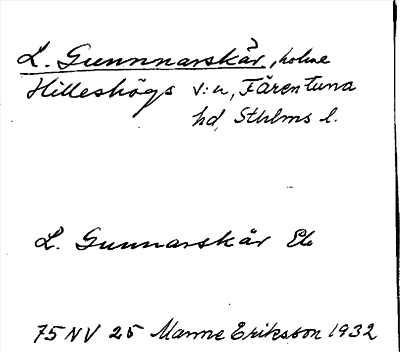 L. Gunnnarskär, holme
Hilleshögs s:n, Färentuna
hd, Sthlms l.
L. Gunnarskär Ek
75 NV 25 Manne Eriksson 1932